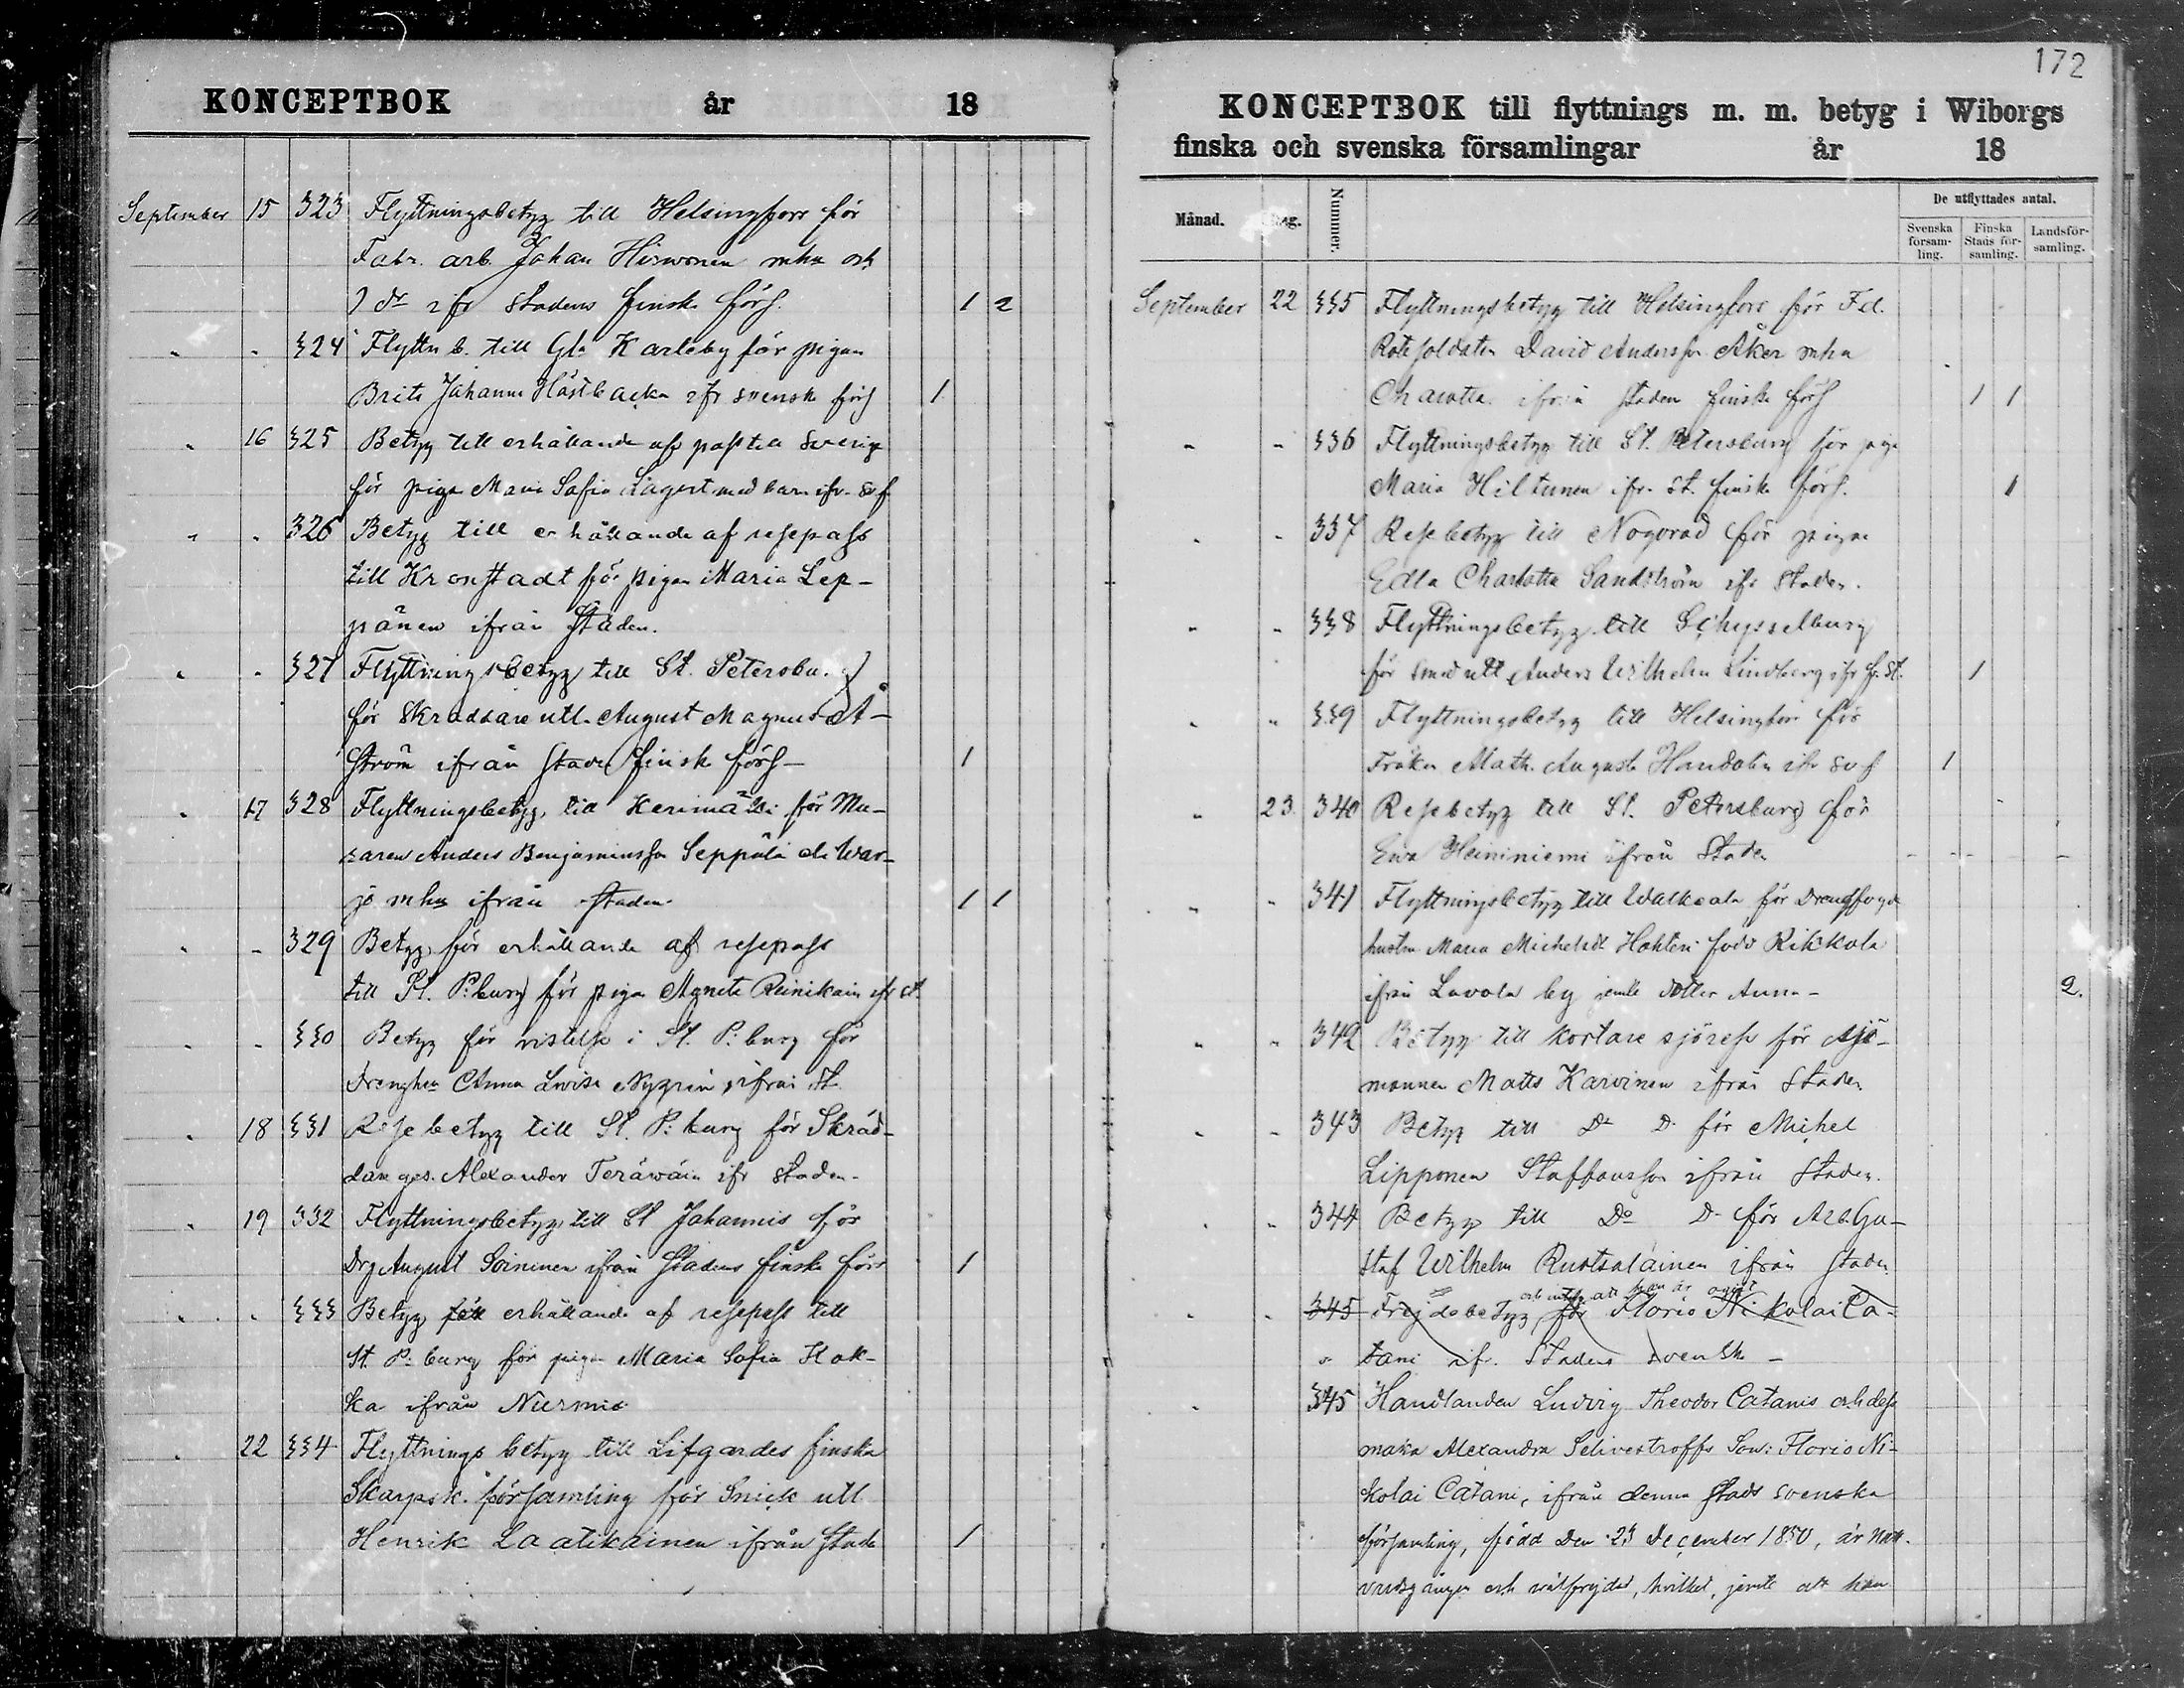 KONCEPTBOK år 18
September 15 323 Flyttningsbetyg till Helsingfors för
Fabr. arb. Johan Hirwonen mhu och
1 dr ifr Stadens finska förs. 1 2
" " 324 Flyttn b. till Gla Karleby för pigan
Brita Johanna Hästbacka ifr svenska förs 1
" 16 325 Betyg till erhållande af pass till Sverige
för pigan Maria Sofia Lagert med barn ifr. Sv f.
" " 326 Betyg till erhållande af resepass
till Kronstadt för pigan Maria Lep-
pänen ifrån Staden.
" " 327 Flyttningsbetyg till St. Petersburg
för Skräddare utl. August Magnus Å-
ström ifrån Staden finska förs- 1
" 17 328 Flyttningsbetyg till Kerimäki för Mu-
raren Anders Benjaminsson Seppälä el. War-
jo mhu ifrån staden 1 1
" " 329 Betyg för erhållande af resepass
till St. P:burg för pigan Agneta Reinikain ifr st.
" " 330 Betyg för vistelse i St. P:burg för
Drenghu Anna Lovisa Nygren, ifrån St.
" 18 331 Resebetyg till St. P:burg för Skräd-
dare ges. Alexander Teräwäin ifr staden.
" 19 332 Flyttningsbetyg till St Johannis för
Drg August Soininen ifrån Stadens finska förs 1
" " 333 Betyg till erhållande af resepass till
St. P:burg för pigan Maria Sofia Hak-
ka ifrån Nurmis
" 22 334 Flyttnings betyg till Lifgardes finska
Skarpsk. församling för Snick utl
Henrik Laatikainen ifrån Stade 1
172
KONCEPTBOK till flyttnings m. m. betyg i Wiborgs
finska och svenska församlingar år 18
Månad. Dag. Nummer. De utflyttades antal.
Svenska församling. Finska Stads församling. Landsförsamling.
September 22 335 Flyttningsbetyg till Helsingfors för F.d.
Rotesoldaten David Andersson Åker mhu
Charlotta ifrån staden finska förs 1 1
" " 336 Flyttningsbetyg till St. Petersburg för piga
Maria Hiltunen ifr. St. finska förs. 1
" " 337 Resebetyg till Nogorad för pigan
Edla Charlotta Sandström ifr Staden.
" " 338 Flyttningsbetyg till Schysselburg
för smed utl Anders Wilhelm Lindberg ifr f. St. 1
" " 339 Flyttningsbetyg till Helsingfors för
Fröken Math. Augusta Handolin ifr Sv f 1
" 23 340 Resebetyg till St. Petersburg för
Ewa Heininiemi ifrån Staden
" " 341 Flyttningsbetyg till Walkeala för Drengfogde
hustru Maria Michelsdr Hohten född Rikkola
ifrån Lavola by jemte dotter Anna- 2.
" " 342 Betyg till kortare sjöresa för sjö-
mannen Matts Karvinen ifrån Staden
" " 343 Betyg till Do D. för Michel
Lipponen Staffansson ifrån Staden.
" " 344 Betyg till Do D. för Arb. Gu-
staf Wilhelm Ruotsalainen ifrån staden
och intyg att han är ogift
" " 345 Frejdebetyg för Florio Nikolai Ca-
" tani ifr. Stadens svenska -
" 345 Handlanden Ludvig Theodor Catanis och dess
maka Alexandra Selivestroffs Son: Florio Ni-
kolai Catani, ifrån denna stads svenska
församling, född den 23 December 1850, är natt-
vardsgången och välfrejdad, hvilket, jemte att han